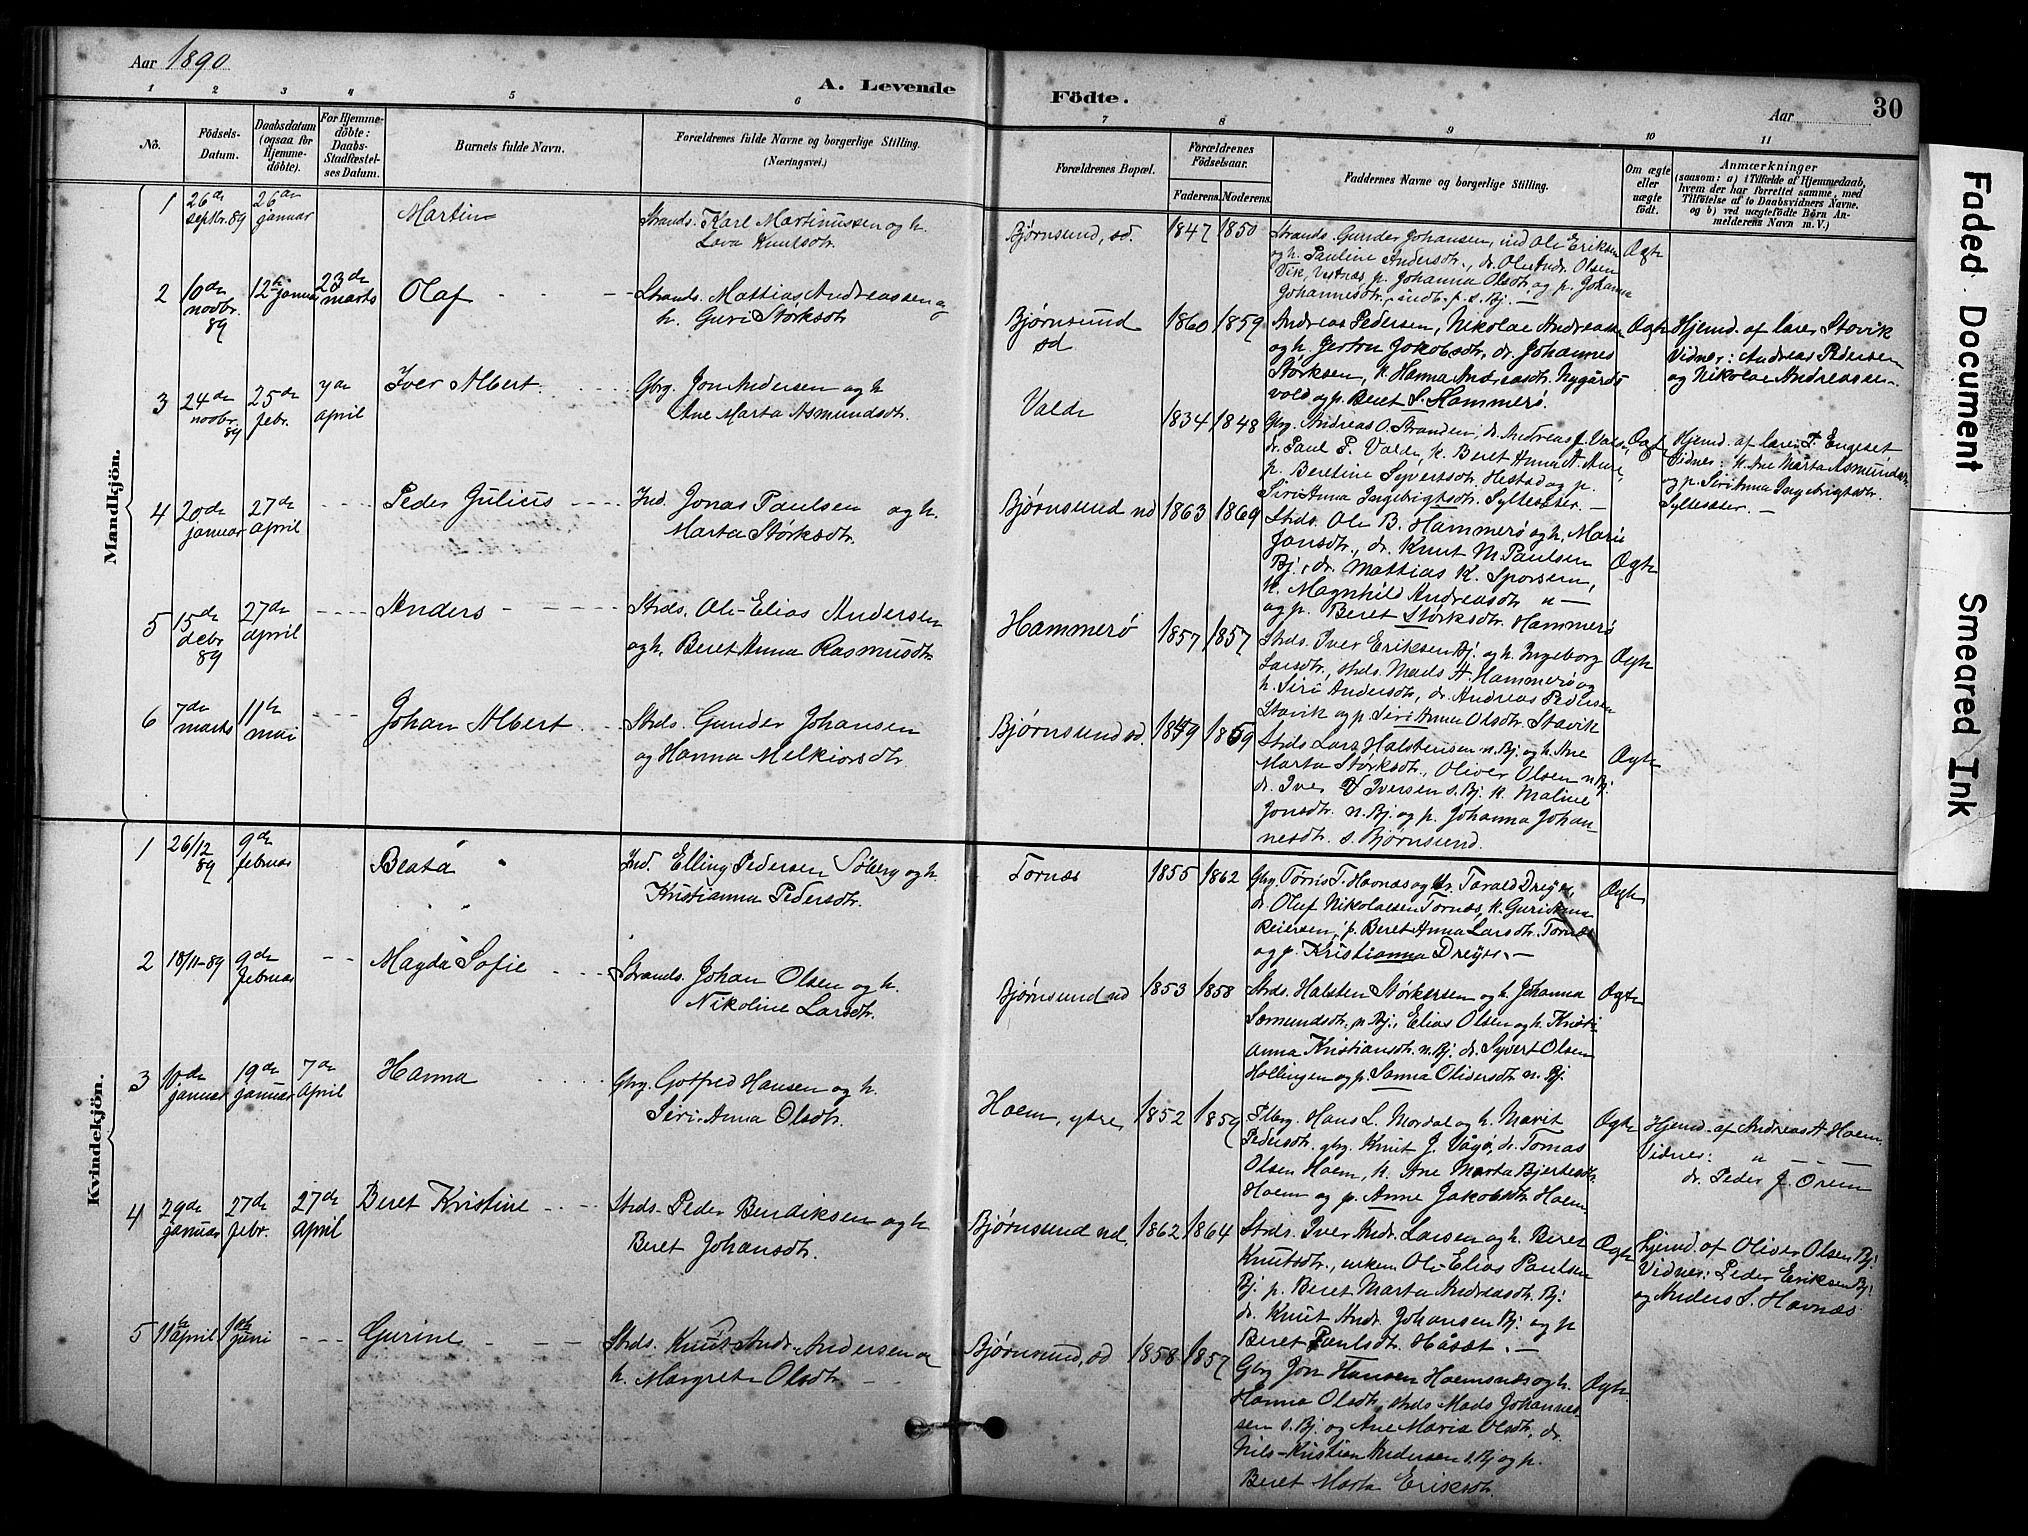 Aar 1890
A. Levende Födte.
Aar
30
1 2 3 4 5 6 7 8 9 10 11
No.
Födsels-Datum.
Daabsdatum (ogsaa for Hjemmedøbte).
For Hjemmedøbte: Daabs-Stadfæstelses Datum.
Barnets fulde Navn.
Forældrenes fulde Navne og borgerlige Stilling.
(Næringsvei.)
Forældrenes Bopæl.
Forældrenes Födselsaar.
Faderens. Moderens.
Faddernes Navne og borgerlige Stilling.
Om ægte eller uægte født.
Anmærkninger
(saasom: a) i Tilfælde af Hjemmedaab, hvem der har forrettet samme, med Tilföielse af to Daabsvidners Navne, og b) ved uægtefödte Börn Anmelderens Navn m. V.)
Mandkjön.
1 26de septbr. 89 26de januar Martin
Strands. Karl Martinussen og h.
Lava Knutsdtr.
Bjørnsund, sd. 1847 1850
Strands. Gunder Johansen, ind Ole Eriksen
og h. Pauline Andersdtr., dr. Ole Andr. Olsen
Vik, Vestnæs, p. Johanna Olsdtr. og p. Johanna
Johannesdtr., indb. p. s. Bj. —
Ægte
2 10de novbr. 89 12te januar 23de marts Olaf
Strands. Mattias Andreassen og
h. Guri Størksdtr.
Bjørnsund sd. 1860 1859
Andreas Pedersen, Nikolae Andreassen
og h. Gjertru Jakobsdtr, dr. Johannes
Størksen, k. Hanna Andreasdtr. Nygårds
vold og p. Beret S. Hammerø.
Ægte
Hjemd. af lærer Stavik
Vidner: Andreas Pedersen
og Nikolae Andreassen.
3 24de novbr. 89 25de febr. 7de april Iver Albert
Gbrg. Jon Andersen og h
Ane Marta Asmundsdtr.
Valde 1834 1848
Gbrg. Andreas O. Stranden, dr. Andreas J. Valde,
dr. Paul P. Valde, k. Beret Anna A. Aure,
p. Beretine Syvertsdtr. Hestad og p.
Siri Anna Ingebrigtsdtr. Syltesæter. —
Ægte
Hjemd. af lærer T. Engeset
Vidner: k. Ane Marta Asmundsdtr.
og p. Siri Anna Ingebrigtsdtr.
Syltesæter. —
4 20de januar 27de april Peder Gulius
Ind. Jonas Paulsen og h.
Marta Størksdtr.
Bjørnsund nd 1863 1869
Strds. Ole B. Hammerø og h. Marie
Jonsdtr., dr. Knut M. Paulsen
Bj., dr. Mattias K. Sporsem,
k. Magnhild Andreasdtr. " —
og p. Beret Størksdtr. Hammerø
Ægte
5 15de debr 89 27de april Anders
Strds. Ole-Elias Andersen
og h. Beret Anna Rasmusdtr.
Hammerø 1857 1857
Strds. Iver Eriksen Bj. og h. Ingeborg
Larsdtr., strds. Mads A. Hammerø og
h. Siri Andersdtr., dr. Andreas Pedersen
Stavik og p. Siri Anna Olsdtr. Stavik
Ægte
6 7de marts 11te mai Johan Albert
Strds. Gunder Johansen
og Hanna Melkiorsdtr.
Bjørnsund sd. 1849 1859
Strds. Lars Halstensen n. Bj. og h. Ane
Marta Størksdtr., Oliver Olsen n. Bj.
dr. Iver A Iversen s. Bj. k. Maline
Jonsdtr. n. Bj. og p. Johanna Johan-
nesdtr. s. Bjørnsund.
Ægte
Kvindekjön.
1 26/12 89 9de februar Beata
Ind. Elling Pedersen Søberg og h.
Kristianna Pedersdtr.
Tornæs 1855 1862
Gbrg. Torris T. Havnæs og dr. Tarald Dreyer,
dr. Oluf Nikolaesen Tornæs, k. Guri
Reiersen, p. Beret Anna Larsdtr. Tornæs
og p. Kristianna Dreyer. —
Ægte
2 18/11-89 9de februar Magda Sofie
Strands. Johan Olsen og h.
Nikoline Larsdtr.
Bjørnsund nd 1853 1858
Strds. Halsten Størkersen og h. Johanna
Sæmundsdtr. n. Bj., Elias Olsen og h. Kristi-
anna Kristiansdtr. n. Bj. dr. Syvert Olsen
Hollingen og p. Sanna Olidersdtr. n. Bj.
Ægte
3 10de januar 19de januar 7de april Hanna
Gbrg. Gotfred Hansen og h.
Siri-Anna Olsdtr.
Hoem, ytre 1852 1859
Plbrg. Hans L. Mordal og h. Marit
Pedersdtr. gbrg. Knut J. Vågø, dr. Tomas
Olsen Hoem, k. Ane Marta Bjertesdtr.
Hoem og p. Anne Jakobsdtr. Hoem
Ægte
Hjemd. af Andreas A Hoem.
Vidner: " — — —
dr. Peder J. Orem
4 29de januar 27de febr. 27de april Beret Kristine
Strds. Peder Bendiksen og h
Beret Johansdtr.
Bjørnsund nd. 1862 1864
Strds. Iver Andr. Larsen og h. Beret
Knutsdtr., enkem. Ole-Elias Paulsen
Bj. p. Beret Marta Andreasdtr. Bj.
dr. Knut Andr. Johansen Bj. og p
Beret Paulsdtr. Håsæt. —
Ægte
Hjemd. af Oliver Olsen Bj.
Vidner: Peder Eriksen Bj.
og Anders S. Havnæs.
5 11te april 1ste juni Gurine
Strds. Knut Andr. Andersen og
h. Margrete Olsdtr. —
Bjørnsund, sd 1858 1857
Gbrg Jon Hansen Hoemsnæs og h.
Hanna Olsdtr, strds Mads Johannes-
sen s. Bj. og Ane Maria Olsdtr, dr.
Nils-Kristian Andersen s. Bj og p.
Beret Marta Eriksdtr.
Ægte
Faded Document Smeared Ink